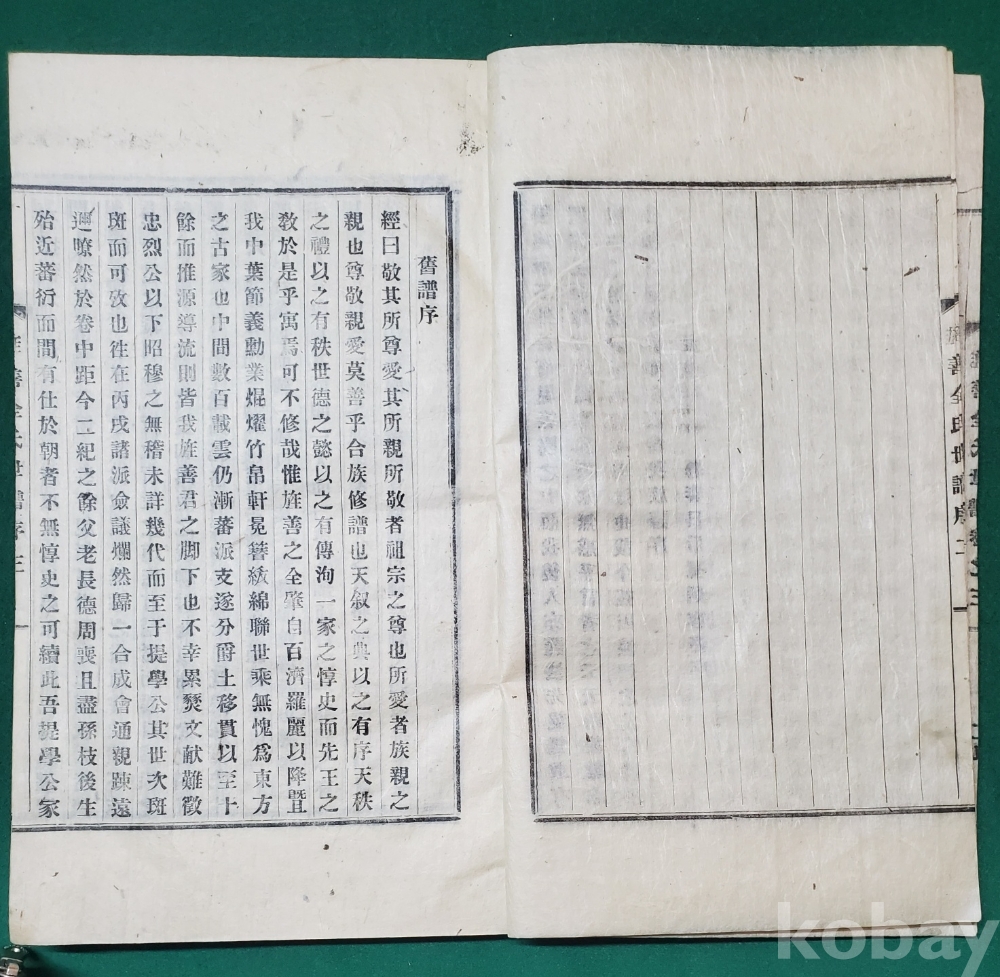 旌善全氏世譜序 二
舊譜序
經曰敬其所尊愛其所親所敬者祖宗之尊也所愛者族親之
親也尊敬親愛莫善乎合族修譜也天叙之典以之有序天秩
之禮以之有秩世德之懿以之有傳洵一家之惇史而先王之
敎於是乎寓焉可不修哉惟旌善之全肇自百濟羅麗以降曁
我中葉節義勳業焜燿竹帛軒冕簪紱綿聯世乘無愧爲東方
之古家也中間數百載雲仍漸蕃派支遂分爵土移貫以至十
餘而推源導流則皆我旌善君之脚下也不幸累燹文献難徵
忠烈公以下昭穆之無稽未詳幾代而至于提學公其世次斑
斑而可攷也徃在丙戌諸派僉議爛然歸一合成會通親踈遠
邇暸然於卷中距今二紀之餘父老長德周喪且盡孫枝後生
殆近蕃衍而間有仕於朝者不無惇史之可續此吾提學公家
旌善全氏世譜序 三
kobay